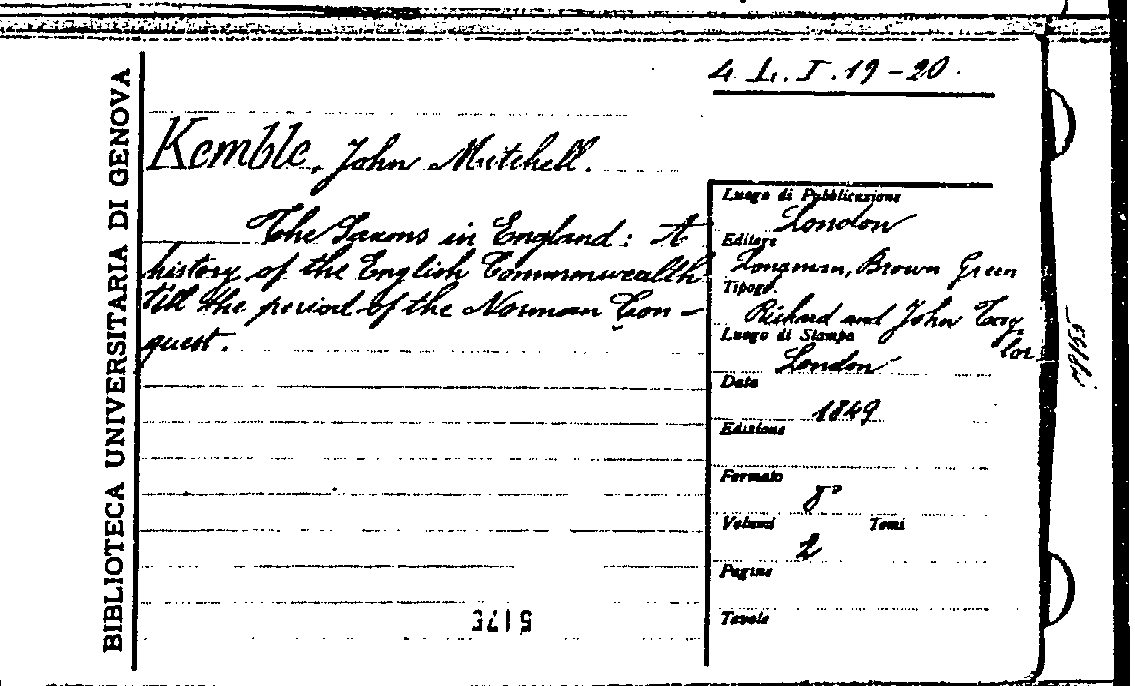 4. L. I. 19-20.
BIBLIOTECA UNIVERSITARIA DI GENOVA
Kemble, John Mitchell.
The Saxons in England: A
history of the English Commonwealth
till the period of the Norman Con-
quest.
Luogo di Pubblicazione
London
Editore
Longman, Brown Green
Tipogr.
Richard and John Tay
lor
Luogo di Stampa
London
Data
1849
Edizione
Formato
8°
Volumi Tomi
2
Pagine
Tavole